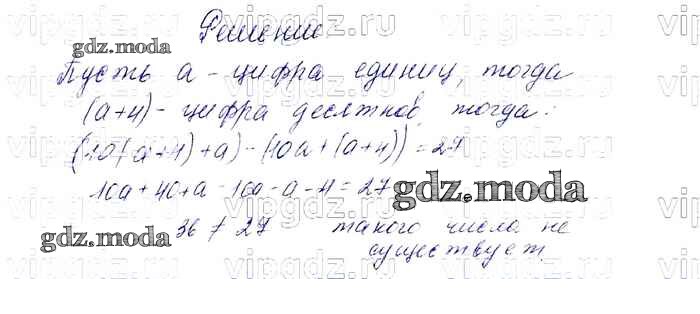 Решение
gdz.moda
Пусть a - цифра единиц, тогда
(a+4) - цифра десятков, тогда:
(10(a+4)+a) - (10a+(a+4)) = 27
10a+40+a-10a-a-4=27
gdz.moda
36 ≠ 27 такого числа не
gdz.moda
существует